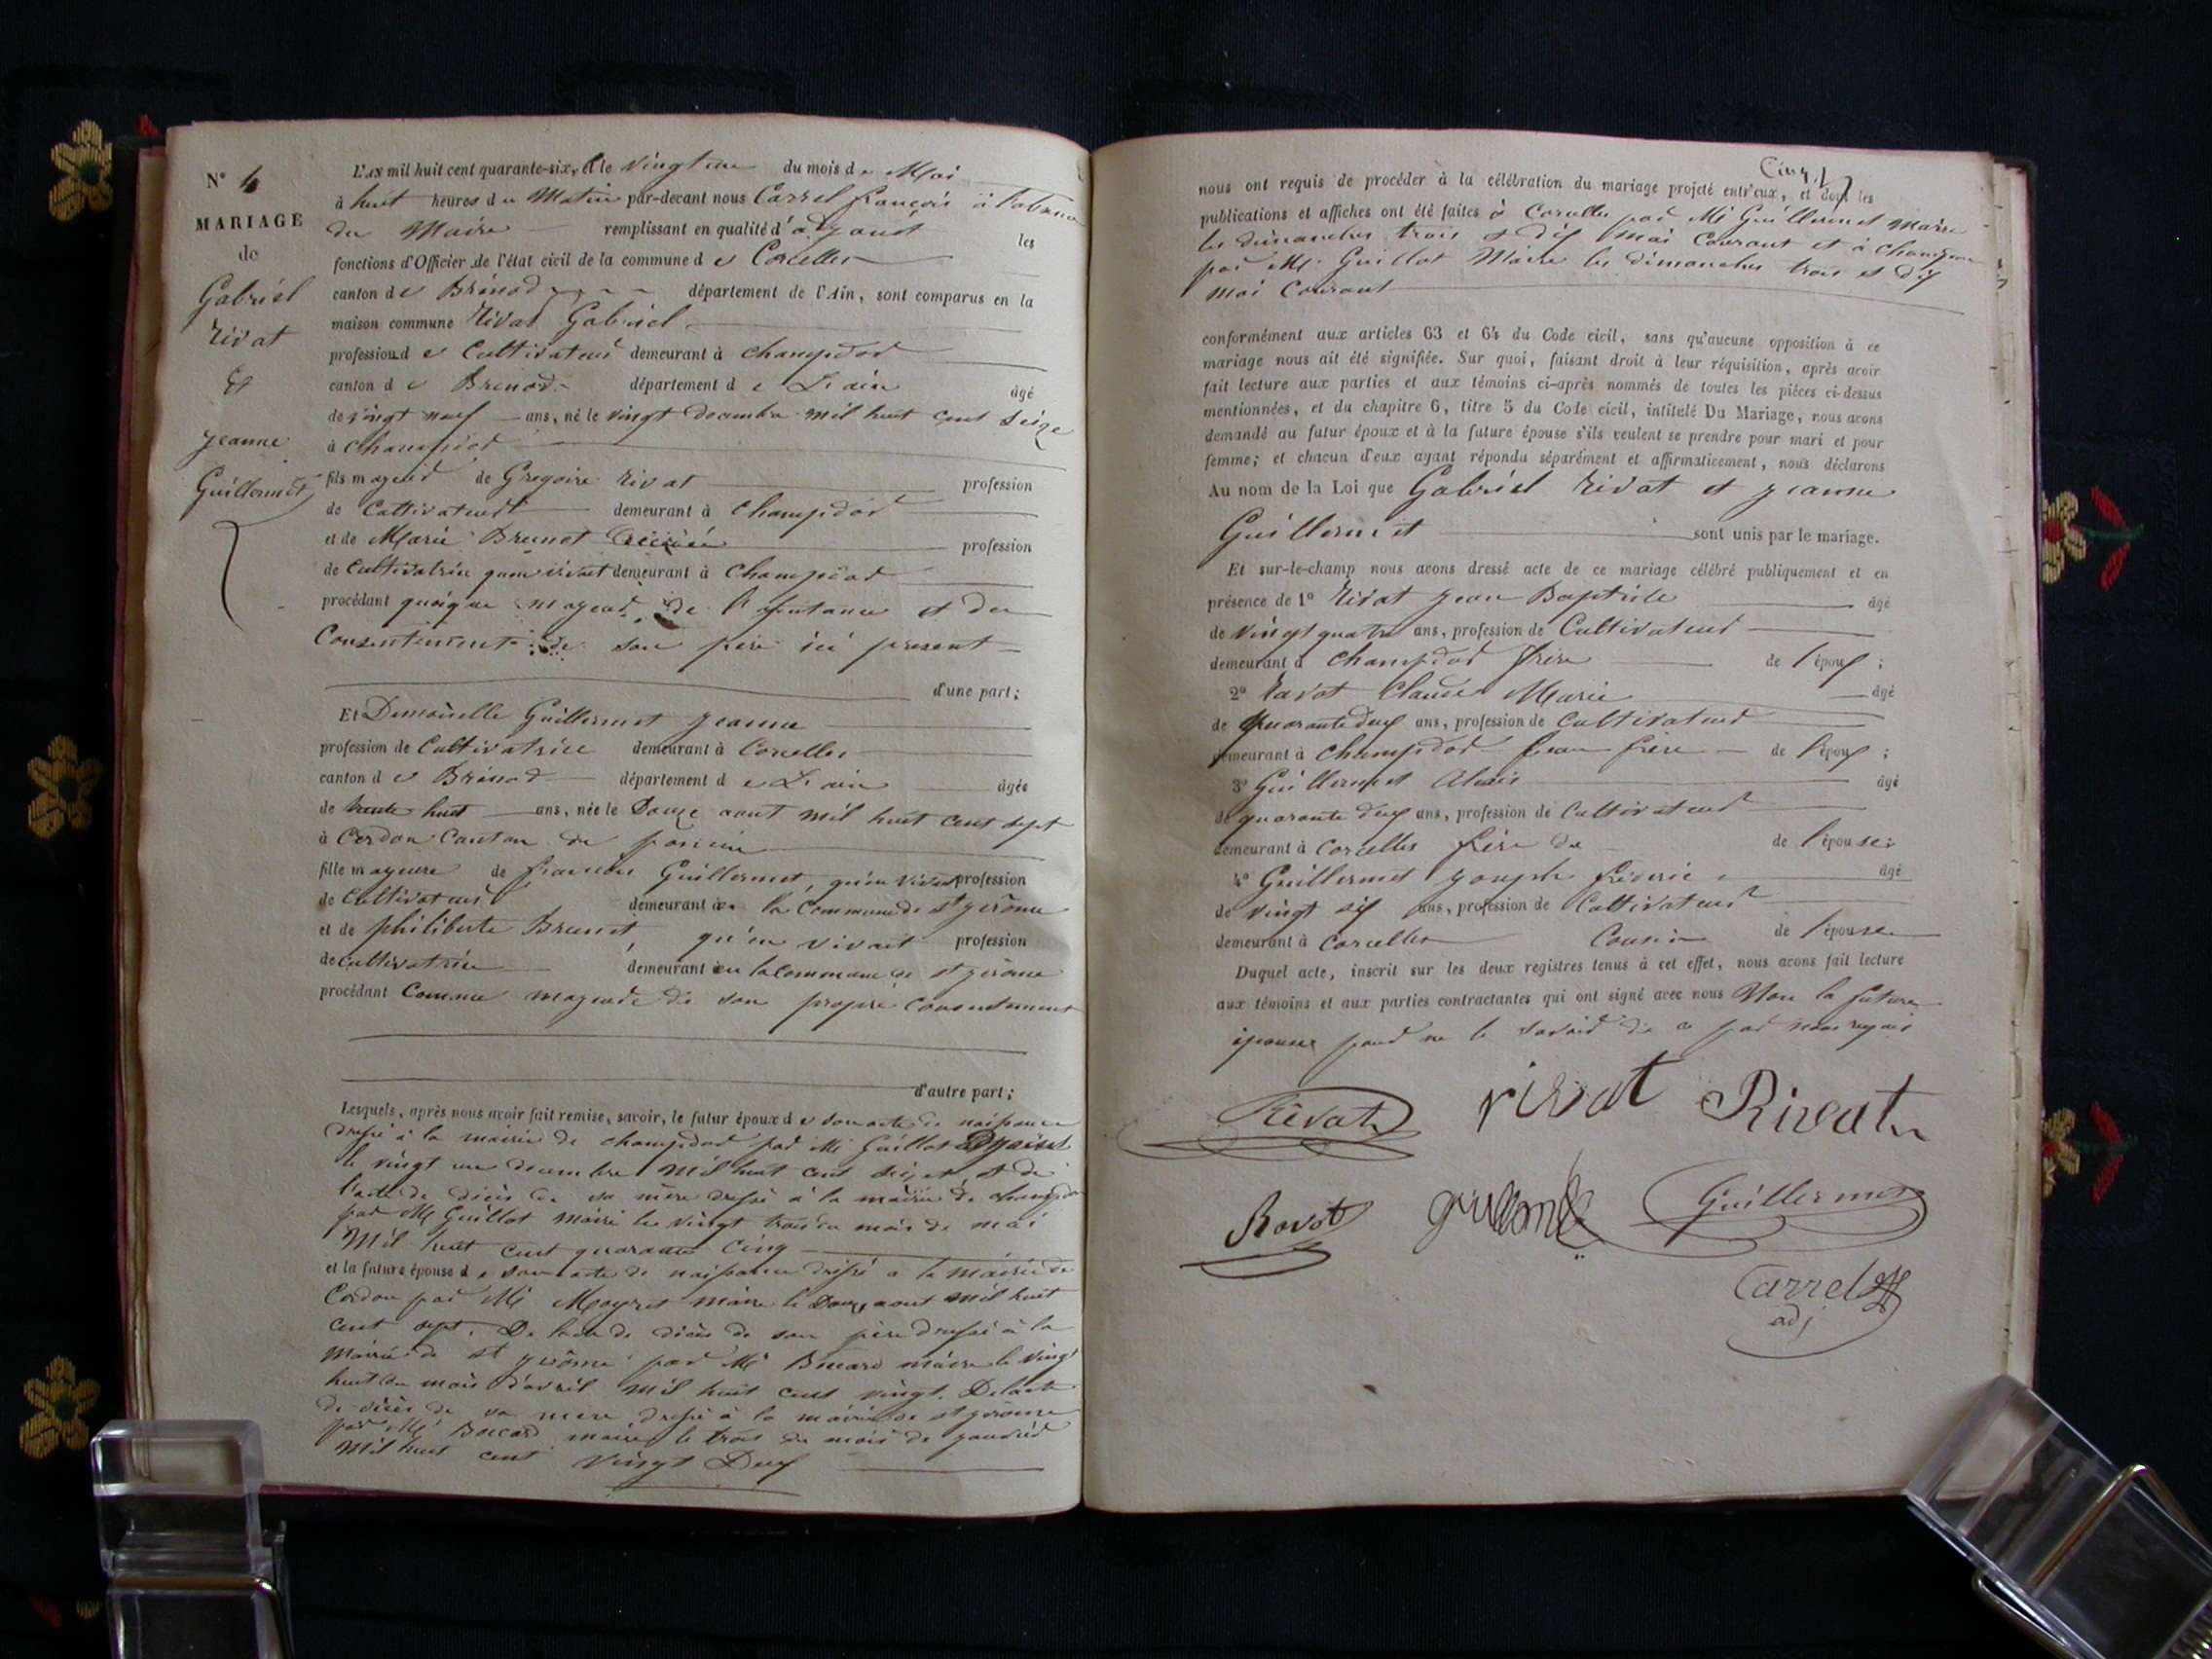 N° 4
MARIAGE
de
Gabriel
rivat
et
jeanne
Guillermet
L'AN mil huit cent quarante-six, et le vingt un du mois de Mai
à huit heures du Matin par-devant nous Carrel françois à l'absence
du Maire remplissant en qualité d'adjoint les
fonctions d'Officier de l'état civil de la commune de Corcelles
canton de Brénod département de l'Ain, sont comparus en la
maison commune rivat Gabriel
profession de Cultivateur demeurant à champdor
canton de Brenod département de L'ain âgé
de vingt neuf ans, né le vingt decembre mil huit cent seize
à Champdor
fils majeur de Gregoire rivat profession
de Cultivateur demeurant à Champdor
et de Marie Brunet profession
de Cultivatrice quan vivait demeurant à Champdor
procédant quoique majeur de l'assistance et du
Consentement de son père ici present
d'une part;
Et Demoiselle Guillermet jeanne
profession de Cultivatrice demeurant à Corcelles
canton de Brénod département de L'ain âgée
de trente huit ans, née le Douze aout mil huit cent sept
à Cerdon Canton de poncin
fille mageure de francois Guillermet, qu'en vivait profession
de Cultivateur demeurant en la Commune de st gerôme
et de philiberte Brunet, qu'en vivait profession
de cultivatrice demeurant en la commune de st gerôme
procédant Comme mageure de son propre consentement
d'autre part;
Lesquels, après nous avoir fait remise, savoir, le futur époux de son acte de naissance
dressé à la mairie de champdor par Mr Guillot
le vingt un decembre mil huit cent seize et de
l'acte de décès de sa mère dressé à la mairie de champdor
par Mr Guillot maire le vingt trois du mois de mai
Mil huit cent quarante cinq
et la future épouse de son acte de naissance dressé a la mairie de
Cerdon par Mr Mayret maire le Douze aout mil huit
cent sept. De lacte de décès de son père dressé à la
Mairie de st gerôme par Mr Bocard maire le vingt
huit du mois d'avril mil huit cent vingt. De lacte
de décès de sa mère dressé à la mairie de st gerome
par Mr Bocard maire le trois du mois de janvier
Mil huit cent vingt Deux
Cinq
nous ont requis de procéder à la célébration du mariage projeté entr'eux, et dont les
publications et affiches ont été faites à Corcelles par Mr Guillermet Maire
les dimanches trois et dix mai Courant et à champdor
par Mr Guillot Maire les dimanches trois et dix
mai Courant
conformément aux articles 63 et 64 du Code civil, sans qu'aucune opposition à ce
mariage nous ait été signifiée. Sur quoi, faisant droit à leur réquisition, après avoir
fait lecture aux parties et aux témoins ci-après nommés de toutes les pièces ci-dessus
mentionnées, et du chapitre 6, titre 5 du Code civil, intitulé Du Mariage, nous avons
demandé au futur époux et à la future épouse s'ils veulent se prendre pour mari et pour
femme; et chacun d'eux ayant répondu séparément et affirmativement, nous déclarons
Au nom de la Loi que Gabriel rivat et jeanne
Guillermet sont unis par le mariage.
Et sur-le-champ nous avons dressé acte de ce mariage célébré publiquement et en
présence de 1° rivat jean Baptiste âgé
de vingt quatre ans, profession de Cultivateur
demeurant à champdor frère de l'époux;
2° ravot Claude Marie âgé
de quarante deux ans, profession de Cultivateur
demeurant à champdor beau frère de l'époux;
3° Guillermet Alexis âgé
de quarante deux ans, profession de Cultivateur
demeurant à Corcelles frère de de l'épouse;
4° Guillermet joseph fréderic âgé
de vingt six ans, profession de Cultivateur
demeurant à Corcelles Cousin de l'épouse
Duquel acte, inscrit sur les deux registres tenus à cet effet, nous avons fait lecture
aux témoins et aux parties contractantes qui ont signé avec nous Non la future
épouse pour ne le savoir de ce par nous requis
Rivat rivat Rivat
Ravot guillermet Guillermet
Carrel
adj